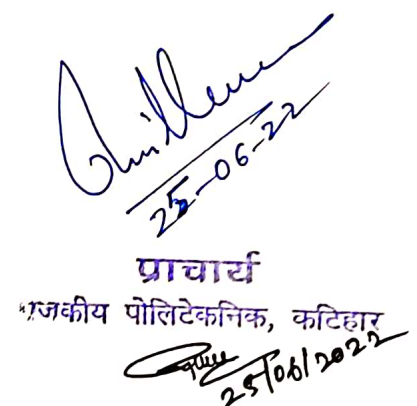 25-06-22
प्राचार्य
राजकीय पोलिटेकनिक, कटिहार
25/06/2022